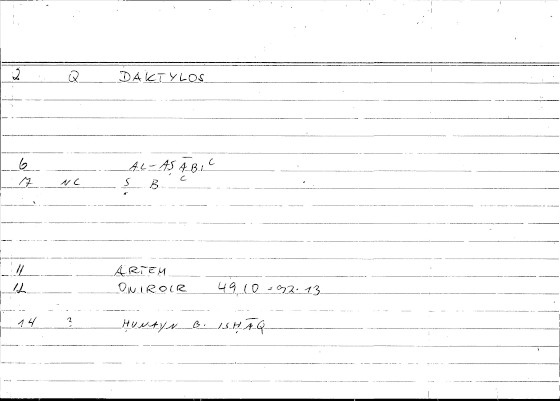 2 Q DAKTYLOS
6 AL-AṢĀBIᶜ
17 NC Ṣ B ᶜ
11 ARTEM
12 ONIROCR 49,10 - 92.13
14 ? ḤUNAYN B. ISḤĀQ